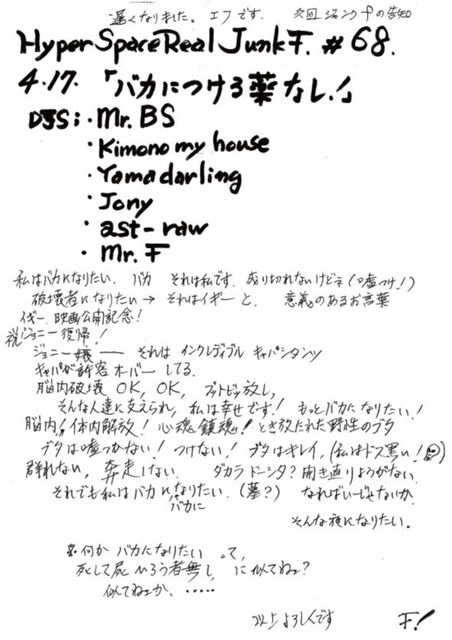 遅くなりました。エフです。 次回ジャンクFの告知
Hyper Space Real Junk F. #68.
4.17. 「バカにつける薬なし!」
DJS: ・Mr. BS
・Kimono my house
・Yamadarling
・Jony
・ast-raw
・Mr. F
私はバカになりたい. バカ それは私です. 成り切れないけどネ(嘘つけ!)
破壊者になりたい → それはイギーと. 意義のあるお言葉
イギー. 映画公開記念!
祝ジョニー復帰!
ジョニー嬢 ― それは インクレディブル キャパシタンツ
キャパが許容オーバーしてる.
脳内破壊 OK, OK, ブットビッ放し,
そんな人達に支えられ, 私は幸せです! もっとバカになりたい!
脳内! 体内解放! 心魂鎮魂! とき放たれた野性のブタ
ブタは嘘つかない! つけない! ブタはキレイ. (私はドス黒い!)
群れない, 奔走しない. ダカラドーシタ? 開き直りようがない.
それでも私はバカになりたい. (墓?) なればいーじゃないか
バカに
そんな夜になりたい。
何か バカになりたい って,
死して屍ひろう者無し, に似てねぇ?
似てねェか. ・・・・・
以上よろしくです F!